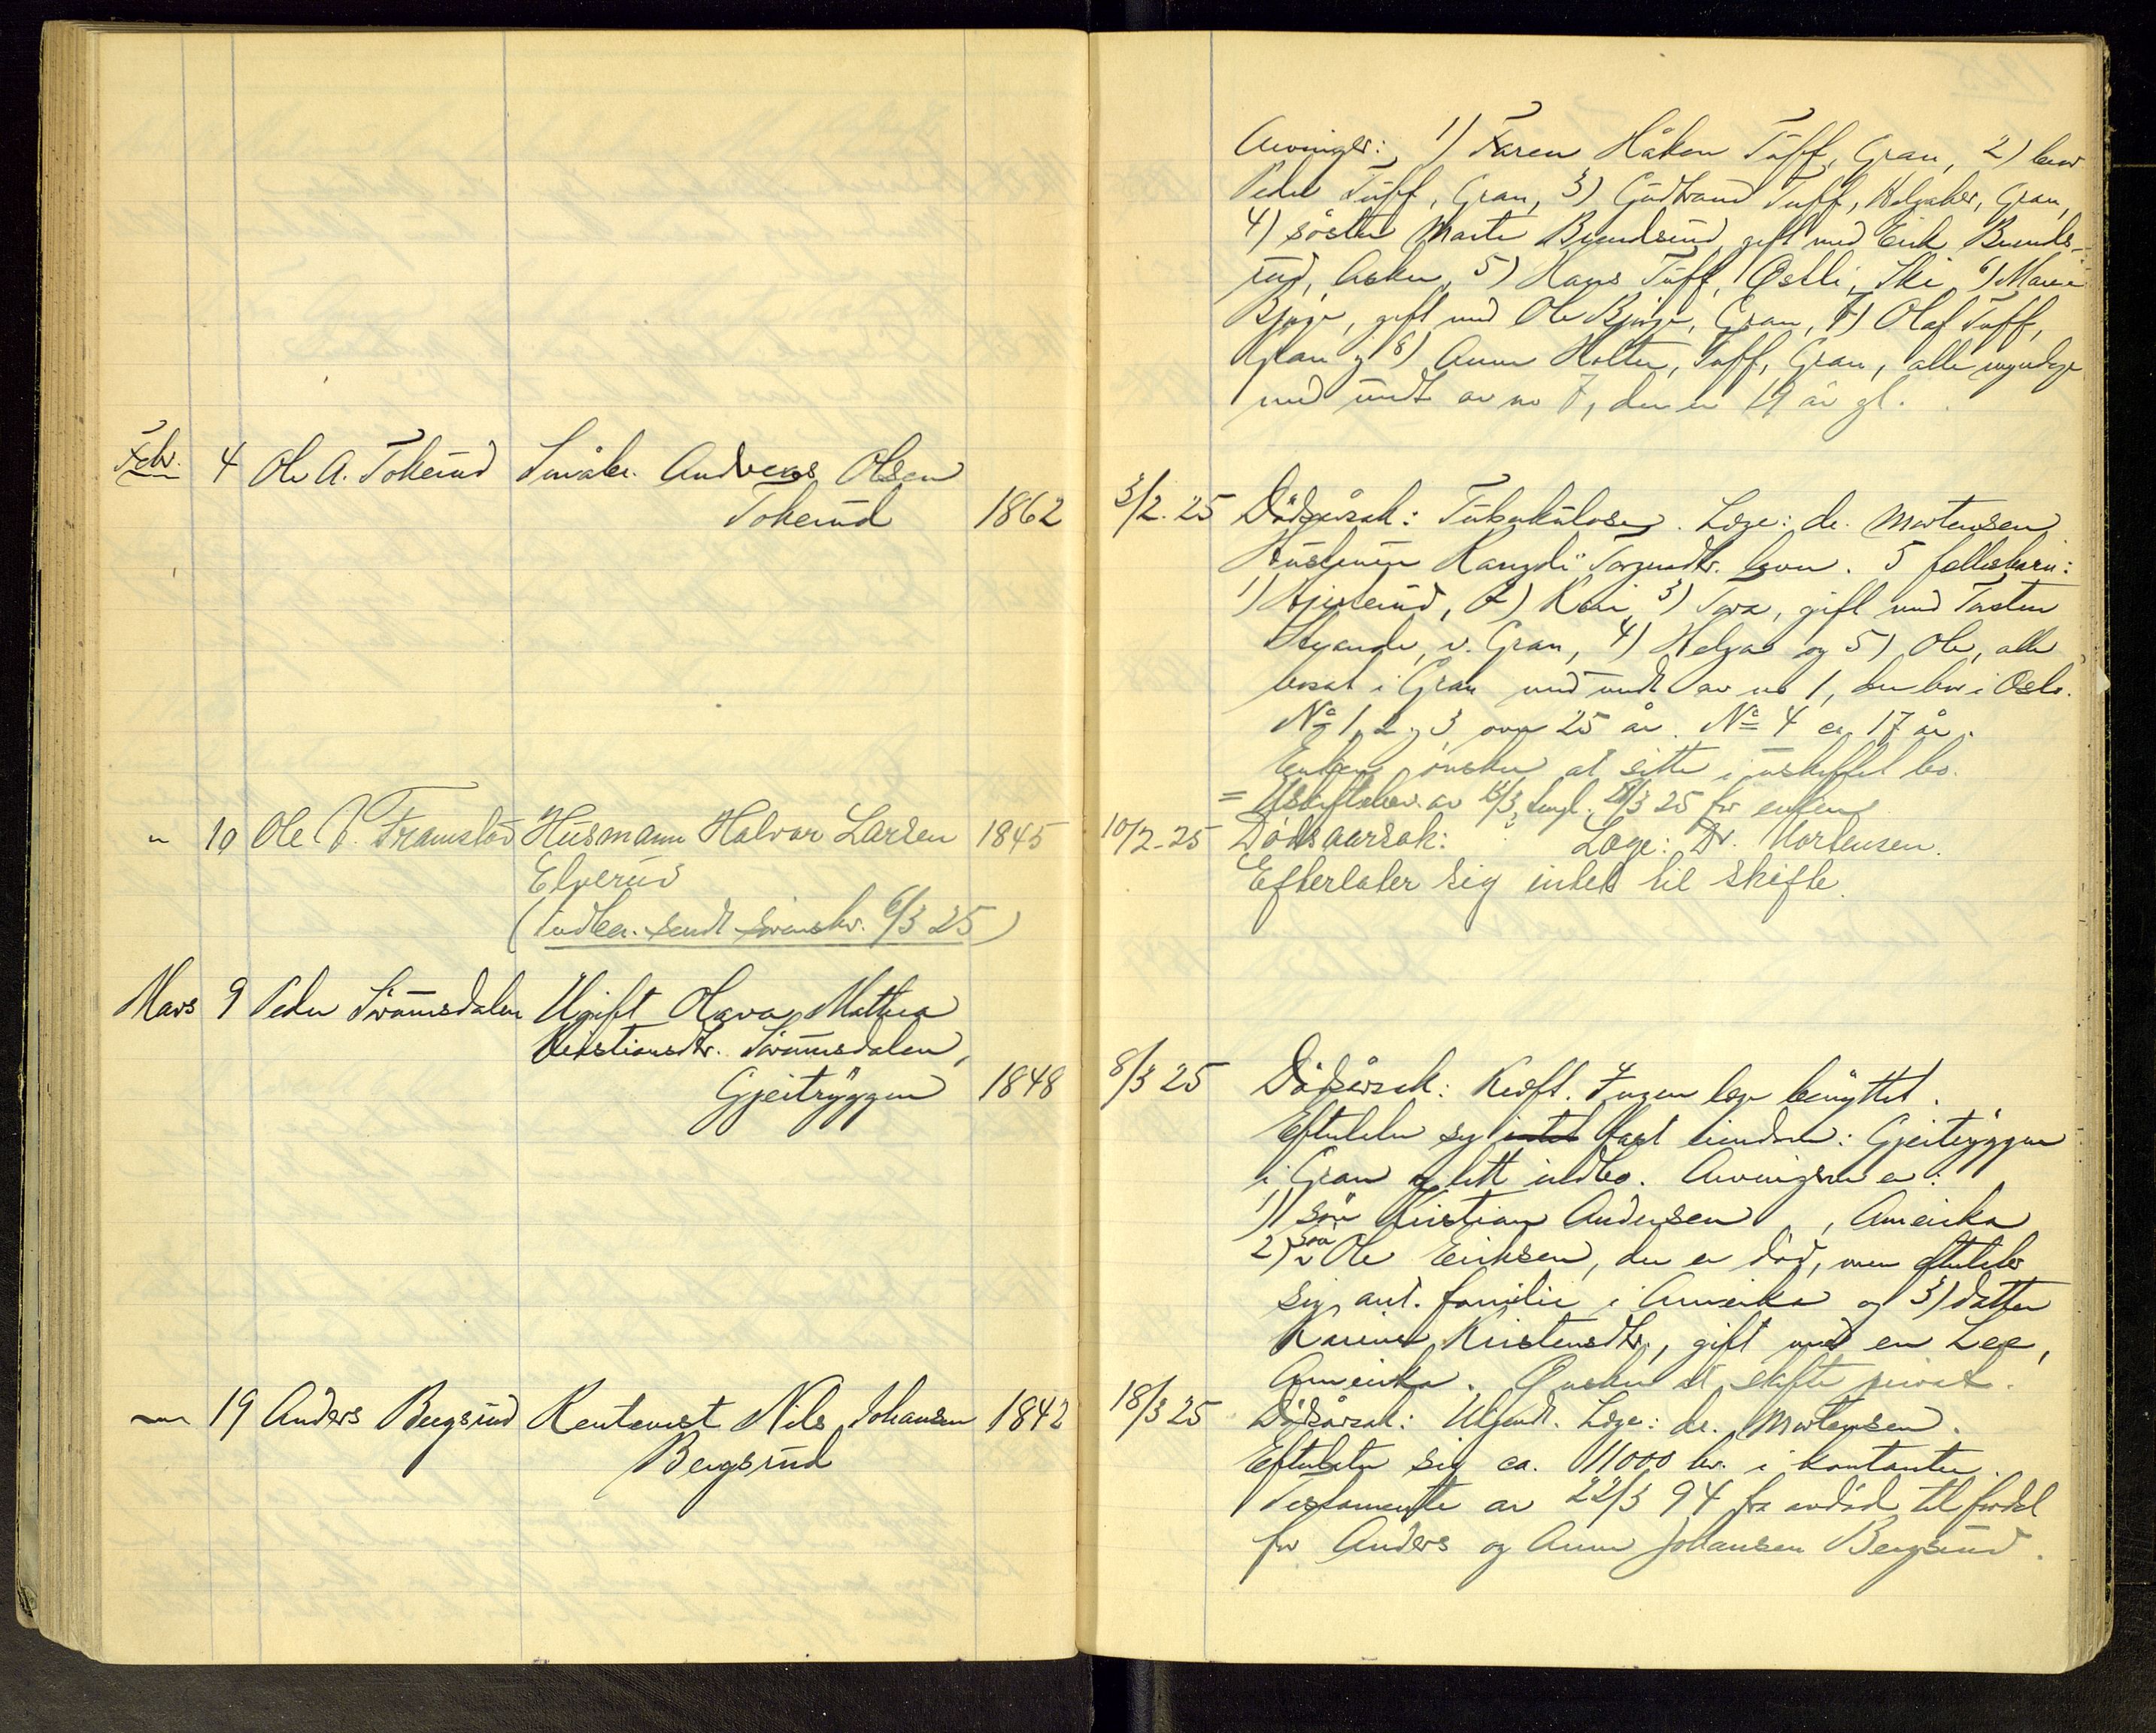 Arvinger: 1) Faren Håken Tuff, Gran, 2) bror
Peder Tuff, Gran, 3) Gudbrand Tuff, Helgaker, Gran,
4) søster Marte Brendsrud gift med Erik Brends-
rud, Asker, 5) Hans Tuff, Østli, Ski 6) Marie
Bjørge, gift med Ole Bjørge, Gran, 7) Olaf Tuff,
Gran og 8) Anne Holter, Tuff, Gran, alle myndige
med undt. av no 7, der er 19 år gl.
Febr. 4 Ole A. Tokerud Småbr. Andreas Olsen
Tokerud 1862 3/2.25 Dødsårsak: Tuberkulose. Læge: dr. Mortensen
Hustruen Rangdi Torgersdtr. lever. 5 fellesbarn:
1) 2) Kari, 3) Tora, gift med Torsten
v. Gran, 4) Helga og 5) Ole, alle
bosat i Gran med undt av no 1, der bor i Oslo.
No 1, 2 og 3 over 25 år. No 4 ca 17 år.
Enken ønsker at sitte i uskiftet bo.
= Uskiftebev. av 25 for enken
" 10 Ole P. Framstad Husmann Halvor Larsen 1845 10/2-25 Dødsaarsak: Læge: Dr. Mortensen.
Elverud Efterlater sig intet til skifte.
(Indber. sendt 6/3 25)
Mars 9 Peder Svamsdalen Ugift Olava Mathea
Kristiansdtr. Svamsdalen,
Gjeitryggen 1848 8/3 25 Dødsårsak: Kræft. Ingen læge benyttet.
Efterlater sig intet fast eiendom: Gjeitryggen
i Gran og litt indbo. Arvingerne er:
1) søn Kristian Andersen, Amerika
2) søn Ole Eriksen, der er død, men efterlater
sig ant. familie i Amerika og 3) datter
Karine Kristensdtr., gift med en Lee,
Amerika. Ønsker at skifte privat.
" 19 Anders Bergsrud Rentenist Nils Johansen 1842 18/3 25 Dødsårsak: Ukjendt. Læge: dr. Mortensen.
Bergsrud Efterlater sig ca. 11000 kr. i kontanter.
Testamente av 22/3 94 fra avdød til fordel
for Anders og Anne Johansen Bergsrud.